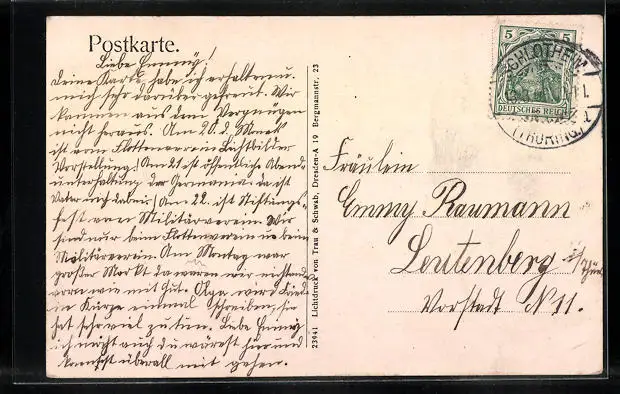 Postkarte.
Liebe Emmy!
Deine Karte habe ich erhalten u.
mich sehr darüber gefreut. Wir
kommen aus dem Vergnügen
nicht heraus. Am 20. d. Monats
ist vom Flottenverein Lichtbilder
Vorstellung! Am 21. ist öffentliche Abend-
unterhaltung der Germania, da ist
Vater mit dabei! Am 22. ist Stiftungs-
fest vom Militärverein. Wir
sind nur beim Flottenverein u. beim
Militärverein. Am Montag war
großer Markt da waren wir
wie mit Gut. Olga wird
in Kürze einmal schreiben, sie
hat sehr viel zu tun. Liebe Emmy
ich möcht auch du wärest hier und
könntest überall mit gehen.
23941 Lichtdruck von Trau & Schwab, Dresden-A 19 Bergmannstr. 23
5 5
DEUTSCHES REICH
SCHLOTHEIM
(THÜRING.)
Fräulein
Emmy Raumann
Leutenberg i/Thür.
Vorstadt N 11.